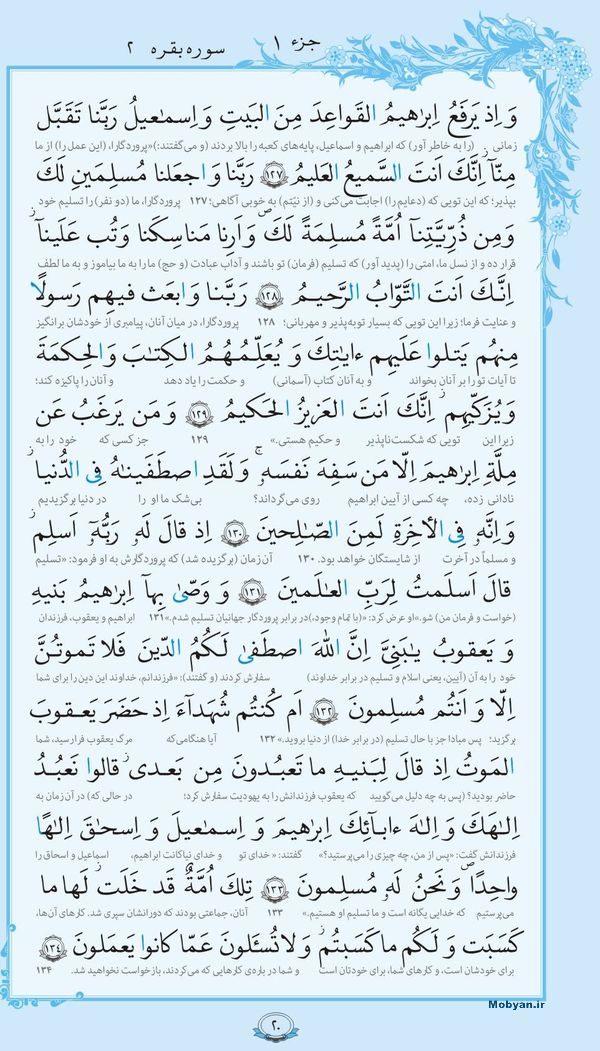 جزء ۱ سوره بقره ۲
وَ اِذ يَرفَعُ اِبراهيمُ القَواعِدَ مِنَ البَيتِ وَ اِسماعيلُ رَبَّنا تَقَبَّل
زمانی (را به خاطر آور) که ابراهیم و اسماعیل، پایه‌های کعبه را بالا بردند (و می‌گفتند:)«پروردگارا، (این عمل را) از ما
مِنّآ اِنَّكَ اَنتَ السَّميعُ العَليمُ ۱۲۷ رَبَّنا وَ اجعَلنا مُسلِمَينِ لَكَ
بپذیر؛ که این تویی که (دعایم را) اجابت می‌کنی و (از نیّتم) به خوبی آگاهی؛ ۱۲۷ پروردگارا، ما (دو نفر) را تسلیم خود
وَ مِن ذُرِّيَّتِنآ اُمَّةً مُسلِمَةً لَكَ وَ اَرِنا مَناسِكَنا وَ تُب عَلَينآ
قرار ده و از نسل ما، امتی را (پدید آور) که تسلیم (فرمان) تو باشند و آداب عبادت (و حج) ما را به ما بیاموز و به ما لطف
اِنَّكَ اَنتَ التَّوّابُ الرَّحيمُ ۱۲۸ رَبَّنا وَ ابعَث فيهِم رَسولًا
و عنایت فرما؛ زیرا این تویی که بسیار توبه‌پذیر و مهربانی؛ ۱۲۸ پروردگارا، در میان آنان، پیامبری از خودشان برانگیز
مِنهُم يَتلوا عَلَيهِم ءاياتِكَ وَ يُعَلِّمُهُمُ الكِتابَ وَ الحِكمَةَ
تا آیات تو را بر آنان بخواند و به آنان کتاب (آسمانی) و حکمت را یاد دهد و آنان را پاکیزه کند؛
وَ يُزَكّيهِم اِنَّكَ اَنتَ العَزيزُ الحَكيمُ ۱۲۹ وَ مَن يَرغَبُ عَن
زیرا این تویی که شکست‌ناپذیر و حکیم هستی.» ۱۲۹ جز کسی که خود را به
مِلَّةِ اِبراهيمَ اِلّا مَن سَفِهَ نَفسَهُ وَ لَقَدِ اصطَفَيناهُ فِى الدُّنيا
نادانی زده، چه کسی از آیین ابراهیم روی می‌گرداند؟ بی‌شک ما او را در دنیا برگزیدیم
وَ اِنَّهُ فِى الآخِرَةِ لَمِنَ الصّالِحينَ ۱۳۰ اِذ قالَ لَهُ رَبُّهُ اَسلِم
و مسلماً در آخرت از شایستگان خواهد بود. ۱۳۰ آن زمان (برگزیده شد) که پروردگارش به او فرمود: «تسلیم
قالَ اَسلَمتُ لِرَبِّ العالَمينَ ۱۳۱ وَ وَصّىٰ بِهآ اِبراهيمُ بَنيهِ
(خواست و فرمان من) شو.»او عرض کرد: «(با تمام وجود،)در برابر پروردگار جهانیان تسلیم شدم.»۱۳۱ ابراهیم و یعقوب، فرزندان
وَ يَعقوبُ يٰبَنِىَّ اِنَّ اللّٰهَ اصطَفىٰ لَكُمُ الدّينَ فَلا تَموتُنَّ
خود را به آن (آیین، یعنی اسلام و تسلیم در برابر خداوند) سفارش کردند (و گفتند): «فرزندانم، خداوند این دین را برای شما
اِلّا وَ اَنتُم مُسلِمونَ ۱۳۲ اَم كُنتُم شُهَدآءَ اِذ حَضَرَ يَعقوبَ
برگزید؛ پس مبادا جز با حال تسلیم (در برابر خدا) از دنیا بروید.» ۱۳۲ آیا هنگامی‌که مرگ یعقوب فرا رسید، شما
المَوتُ اِذ قالَ لِبَنيهِ ما تَعبُدونَ مِن بَعدى قالوا نَعبُدُ
حاضر بودید؟ (پس به چه دلیل می‌گویید که یعقوب فرزندانش را به یهودیت سفارش کرد؛ در حالی که) در آن زمان به
اِلٰهَكَ وَ اِلٰهَ ءابآئِكَ اِبراهيمَ وَ اِسماعيلَ وَ اِسحاقَ اِلٰهًا
فرزندانش گفت: «پس از من، چه چیزی را می‌پرستید؟» گفتند: «خدای تو و خدای نیاکانت ابراهیم، اسماعیل و اسحاق را
واحِدًا وَ نَحنُ لَهُ مُسلِمونَ ۱۳۳ تِلكَ اُمَّةٌ قَد خَلَت لَها ما
می‌پرستیم که خدایی یگانه است و ما تسلیم او هستیم.» ۱۳۳ آنان، جماعتی بودند که دورانشان سپری شد. کارهای آن‌ها،
كَسَبَت وَ لَكُم ما كَسَبتُم وَ لا تُسئَلونَ عَمّا كانوا يَعمَلونَ ۱۳۴
برای خودشان است، و کارهای شما، برای خودتان است و شما در باره‌ی کارهایی که می‌کردند، بازخواست نخواهید شد. ۱۳۴
Mobyan.ir
۲۰